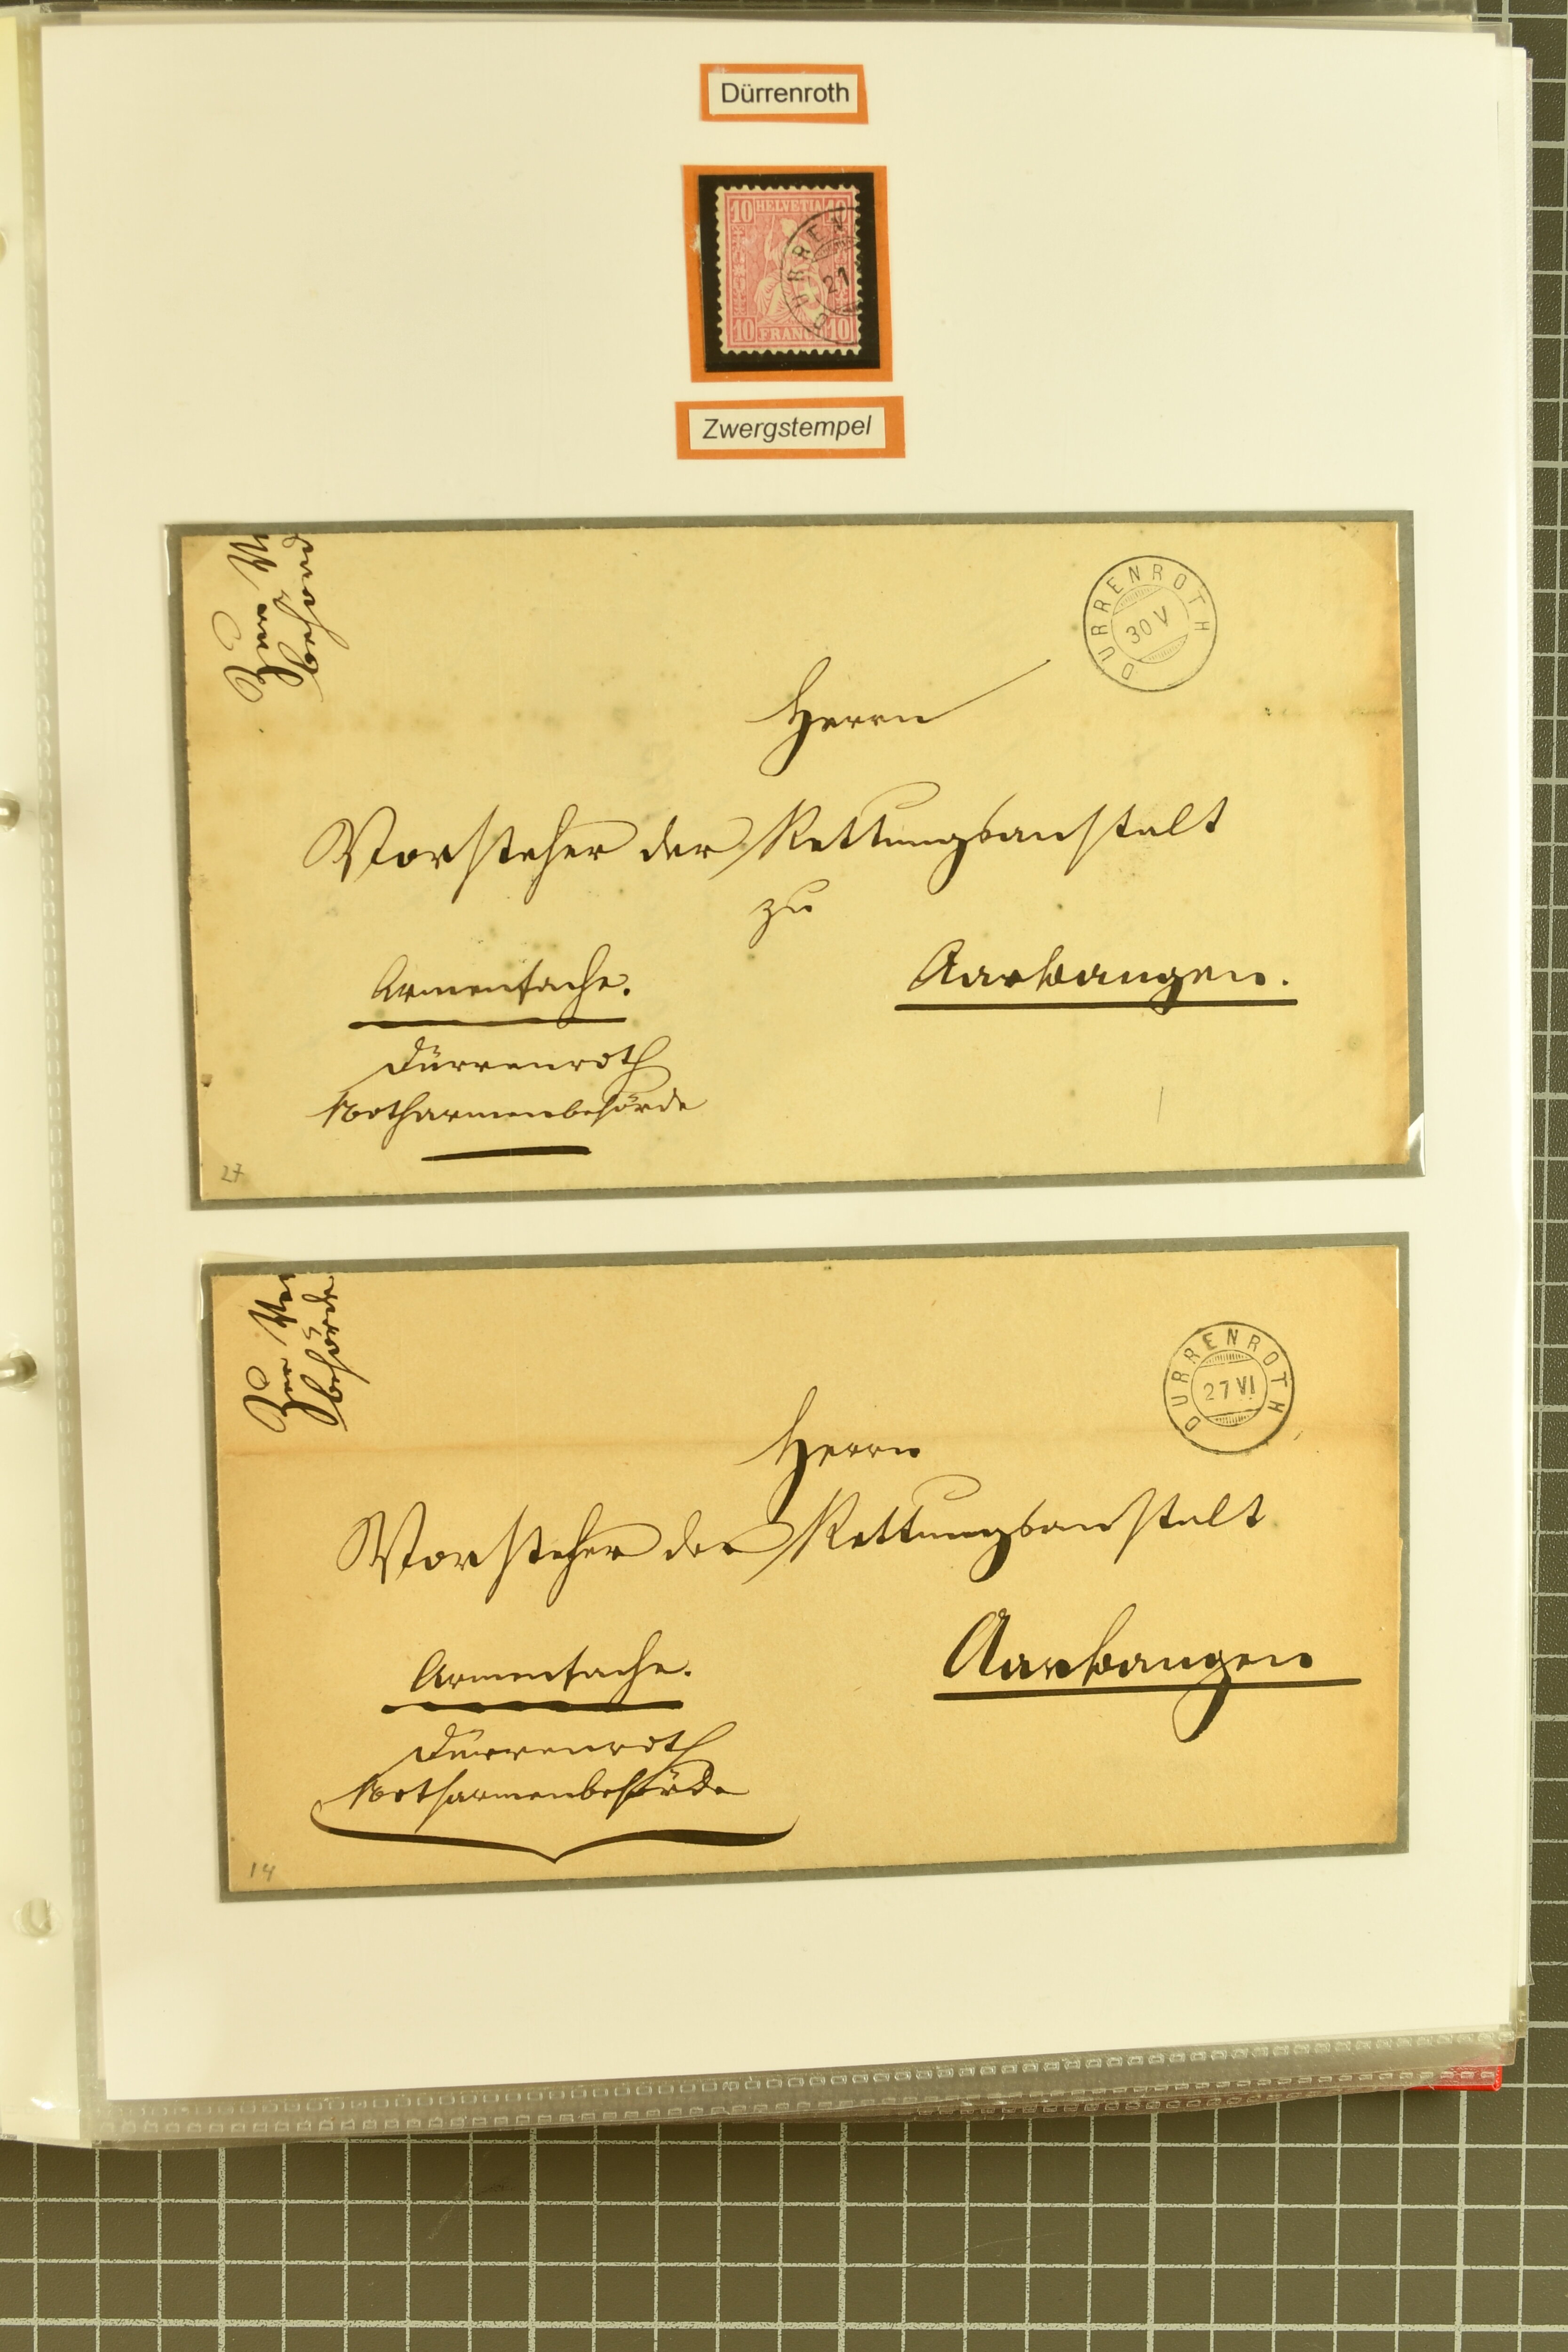 Dürrenroth
10 HELVETIA 10
DURREN
21
10 FRANCO 10
Zwergstempel
behörd
DURRENROTH
30 V
Herrn
Vorsteher der Rettungsanstalt
zu
Aarwangen.
Armensache.
Dürrenroth
Notharmenbehörde
27
behörde
DURRENROTH
27 VI
Herrn
Vorsteher der Rettungsanstalt
Aarwangen
Armensache.
Dürrenroth
Notharmenbehörde
14